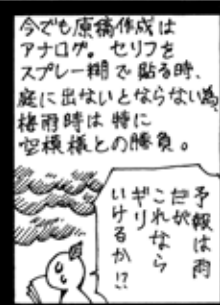 今でも原稿作成は
アナログ。セリフを
スプレー糊で貼る時、
庭に出ないとならない為、
梅雨時は特に
空模様との勝負。
予報は雨
だが
これなら
ギリ
いけるか!?